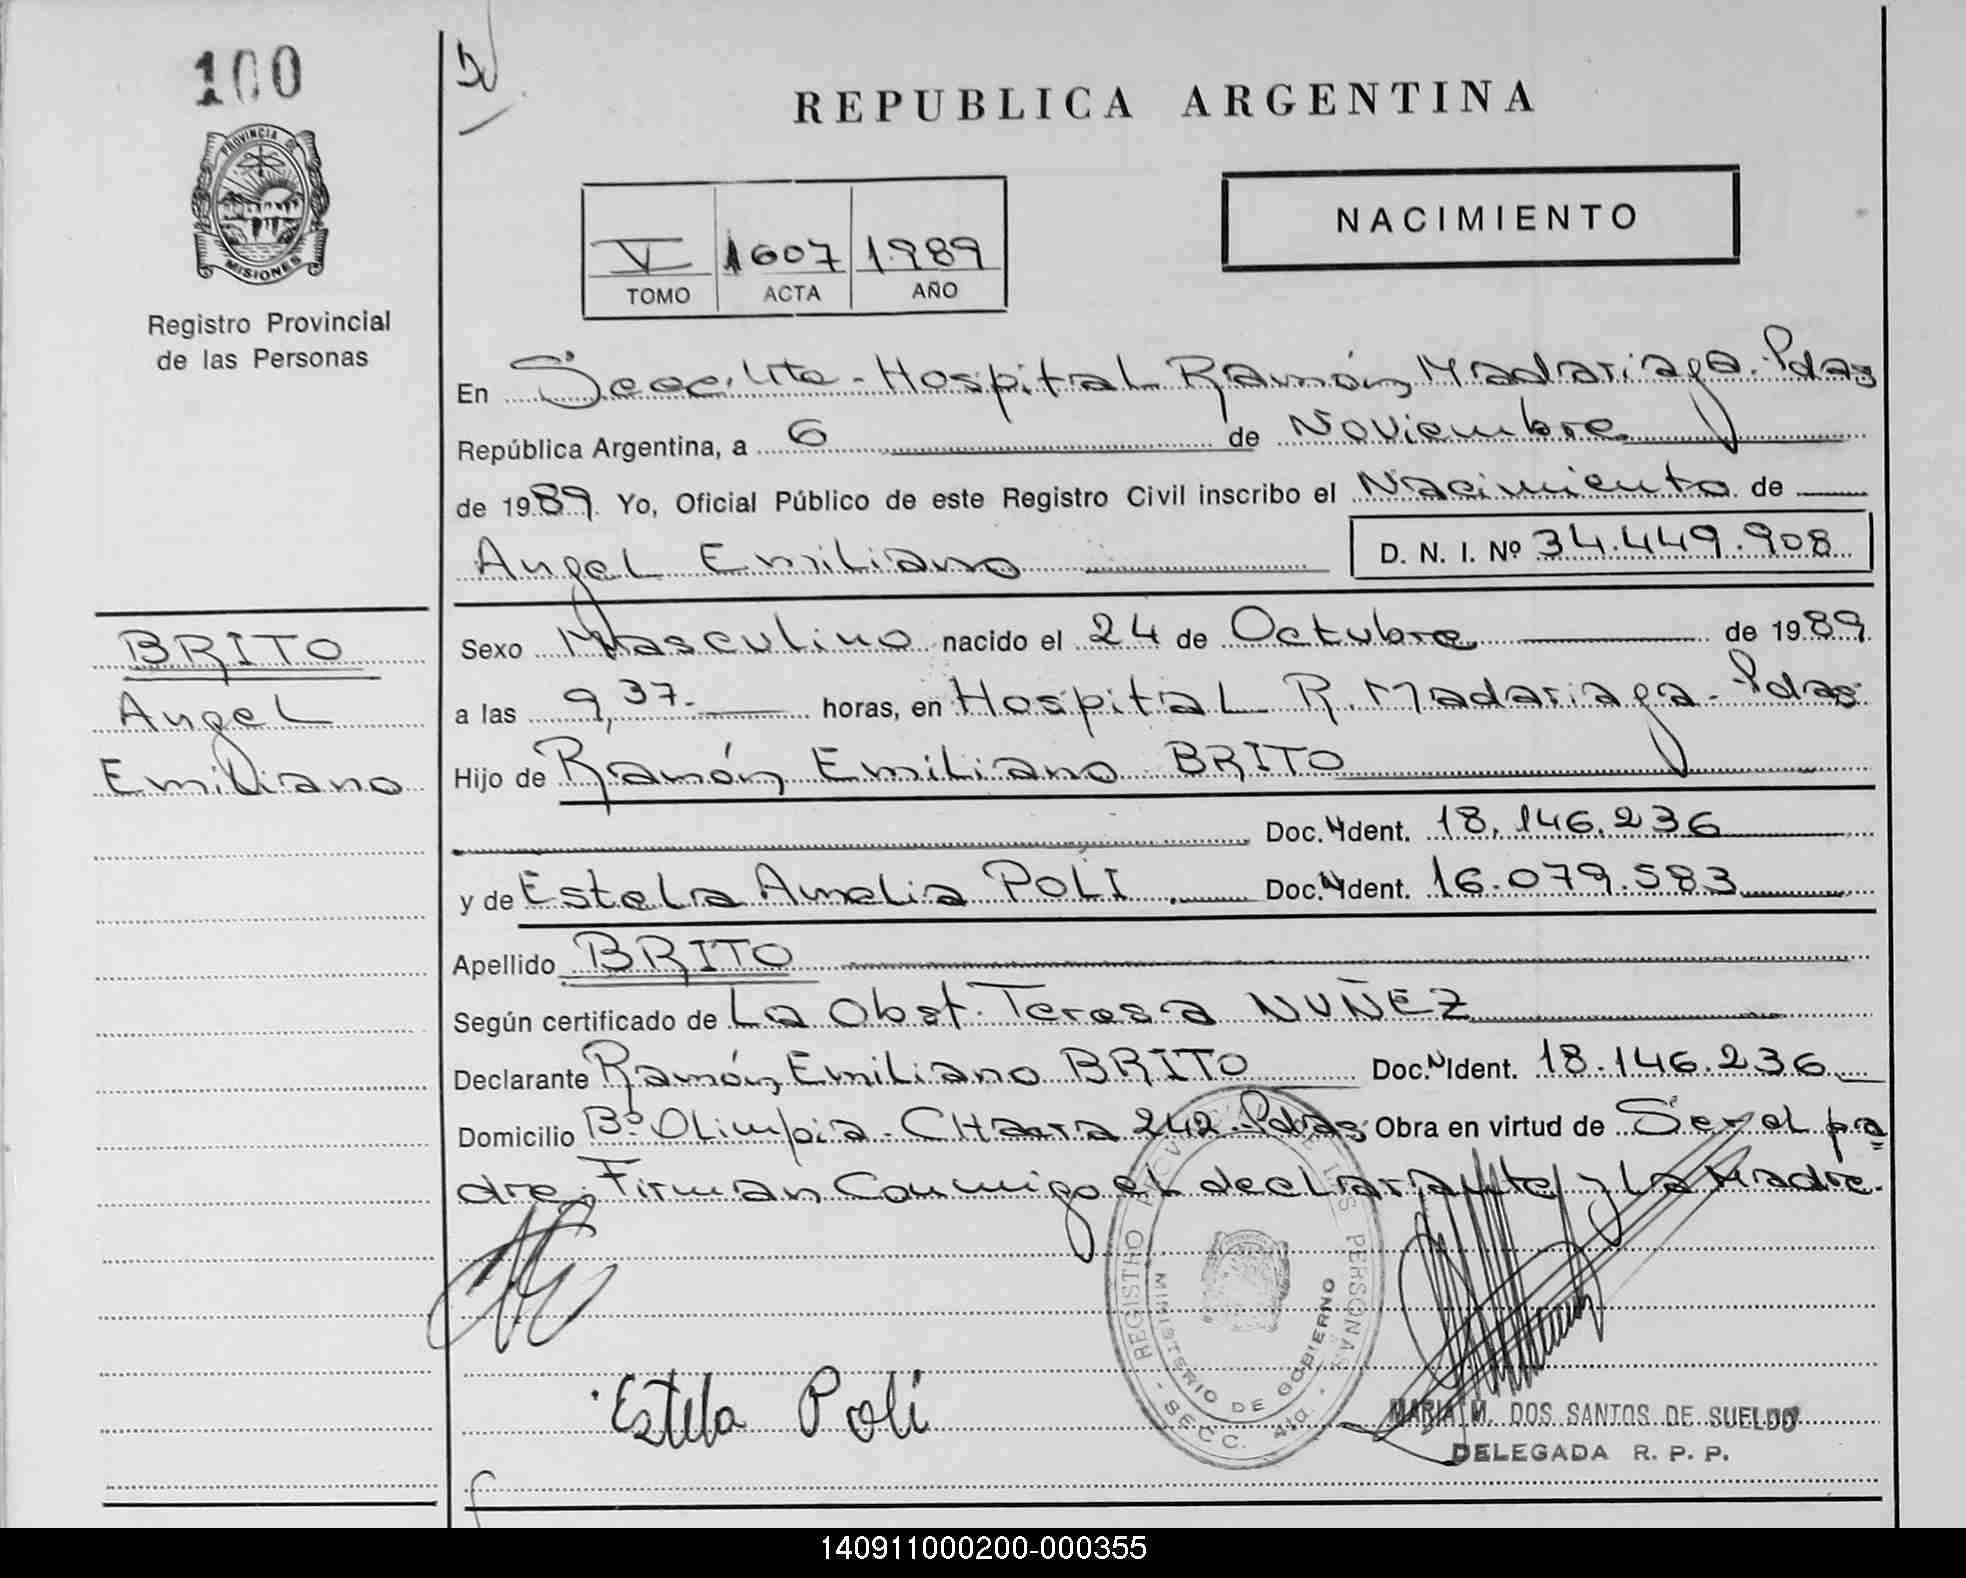 100
PROVINCIA DE
MISIONES
Registro Provincial
de las Personas
REPUBLICA ARGENTINA
NACIMIENTO
V 1607 1989
TOMO ACTA AÑO
En Secc. 4ta - Hospital Ramón Madariaga - Pdas
República Argentina, a 6 de Noviembre
de 1989 Yo, Oficial Público de este Registro Civil inscribo el Nacimiento de
Angel Emiliano D. N. I. Nº 34.449.908
BRITO
Angel
Emiliano
Sexo Masculino nacido el 24 de Octubre de 1989
a las 9,37.- horas, en Hospital R. Madariaga - Pdas
Hijo de Ramón Emiliano BRITO
Doc. Ident. 18.146.236
y de Estela Amelia POLI Doc. Ident. 16.079.583
Apellido BRITO
Según certificado de La Obst. Teresa NUÑEZ
Declarante Ramón Emiliano BRITO Doc. Ident. 18.146.236
Domicilio Bº Olimpia - CHacra 242 - Pdas Obra en virtud de Ser el pa
dre; Firman Conmigo el declarante y La Madre.
REGISTRO PROVINCIAL DE LAS PERSONAS
MINISTERIO DE GOBIERNO
- SECC. 4ta. -
Estela Poli
MARIA M. DOS SANTOS DE SUELDO
DELEGADA R. P. P.
140911000200-000355